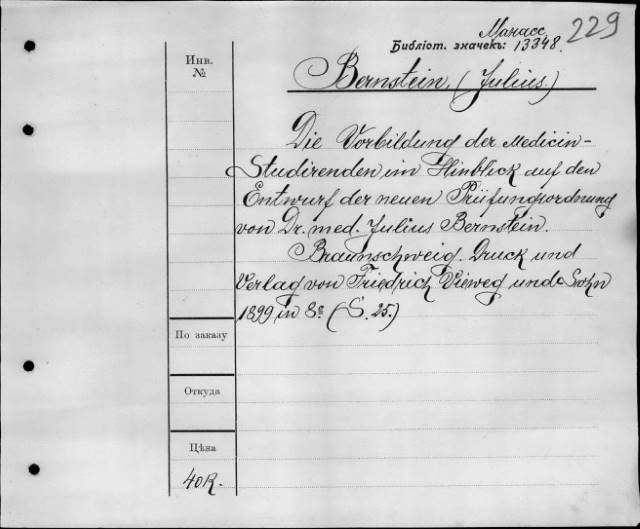 Манасс. 229
Библіот. значекъ: 13348.
Инв.
№
Bernstein (Julius)
Die Vorbildung der Medicin-
Studirenden im Hinblick auf den
Entwurf der neuen Prüfungsordnung
von Dr. med. Julius Bernstein.
Braunschweig. Druck und
Verlag von Friedrich Vieweg und Sohn
1899 in 8º (S. 25.)
По заказу
Откуда
Цѣна
40К.